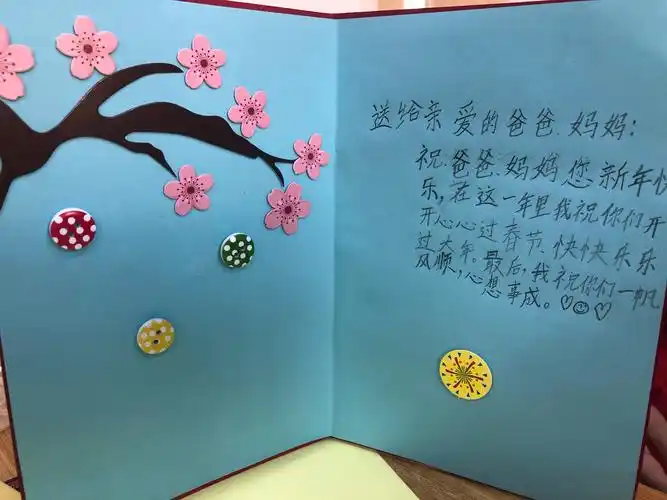 送给亲爱的爸爸.妈妈:
祝.爸爸.妈妈您新年快
乐,在这一年里我祝你们开
开心心过春节.快快乐乐
过大年。最后,我祝你们一帆
风顺,心想事成。♡☺♡